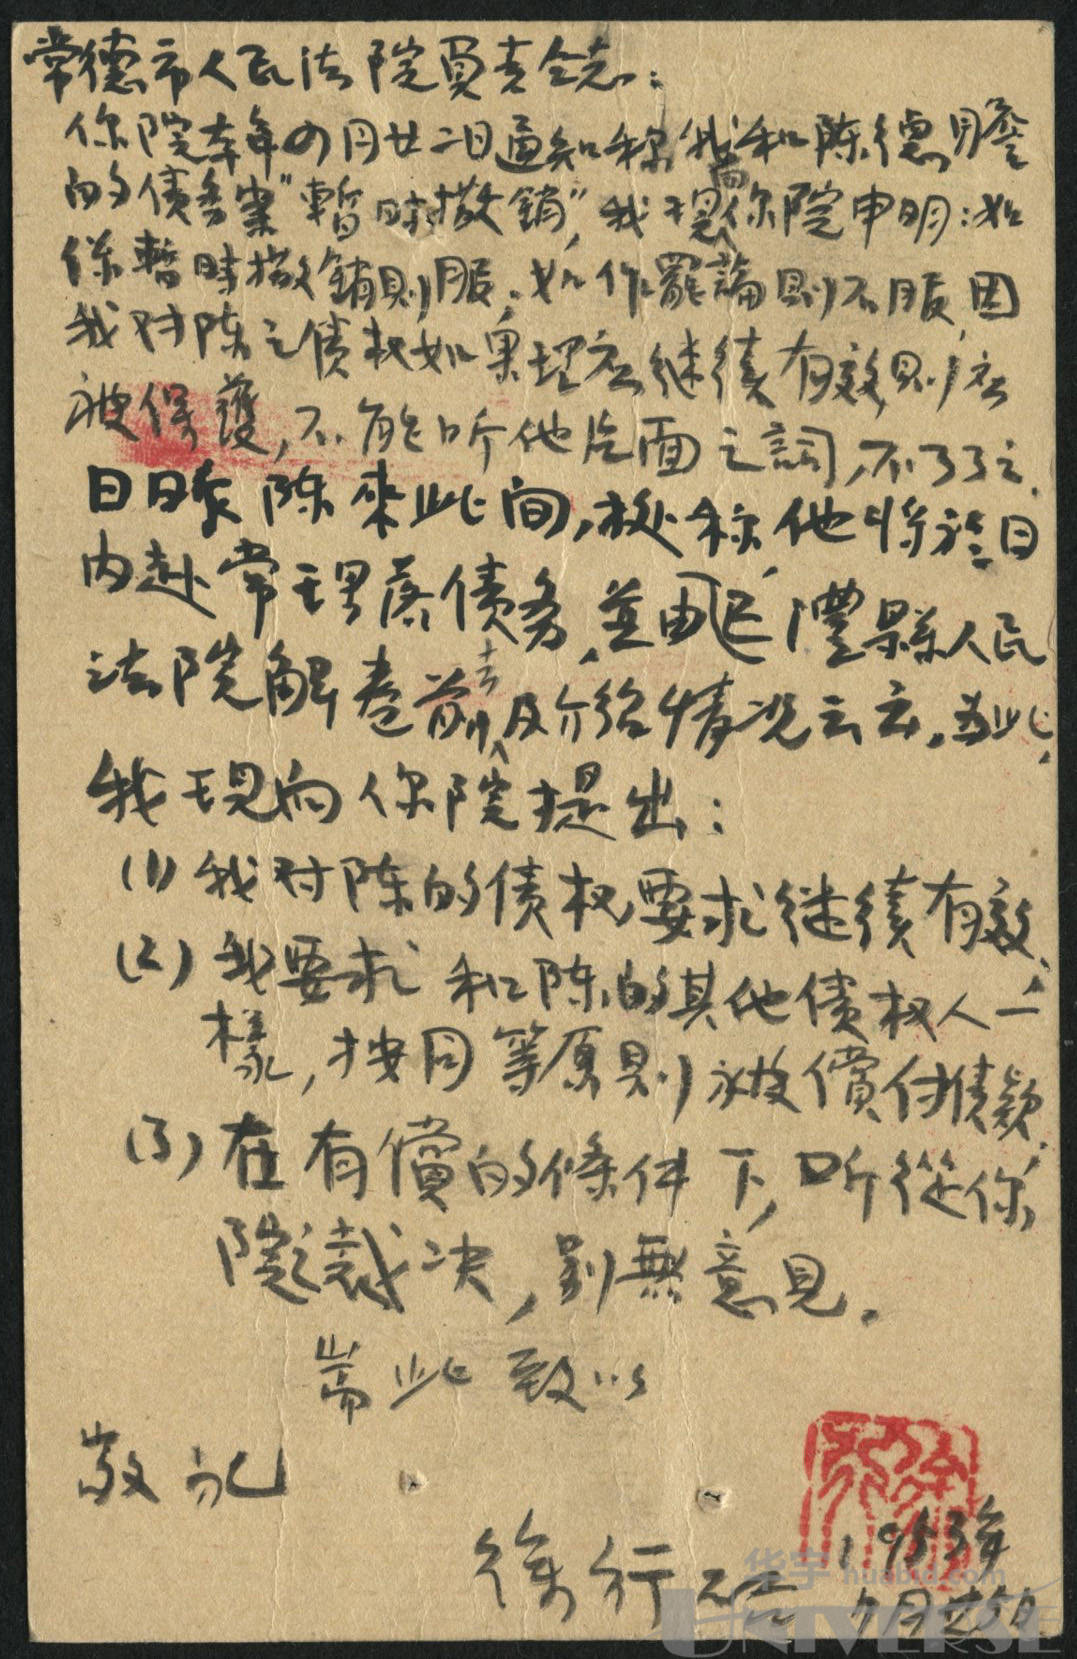 常德市人民法院負責仝志：
你院本年四月廿二日通知称我和陈德
的债务案"暫时撤銷"，我現向你院申明：如
係暫時撤銷則服，如作罷論則不服，因
我对陈之债权如果理应继续有效，則应
被保護，不能听他片面之詞，不了了之。
日昨陈來此间，据称，他将於日
内赴常理落债务，並由澧縣人民
法院解卷前去及介绍情况云云。為此，
我現向你院提出：
(1) 我对陈的债权要求继续有效、
(2) 我要求和陈的其他债权人一
樣，按同等原則被償付债款。
(3) 在有償的條件下，听從你
院裁决，别無意見。
耑此致以
敬礼
徐行 1953年
月日
华宇 huabid.com
UNIVERSE